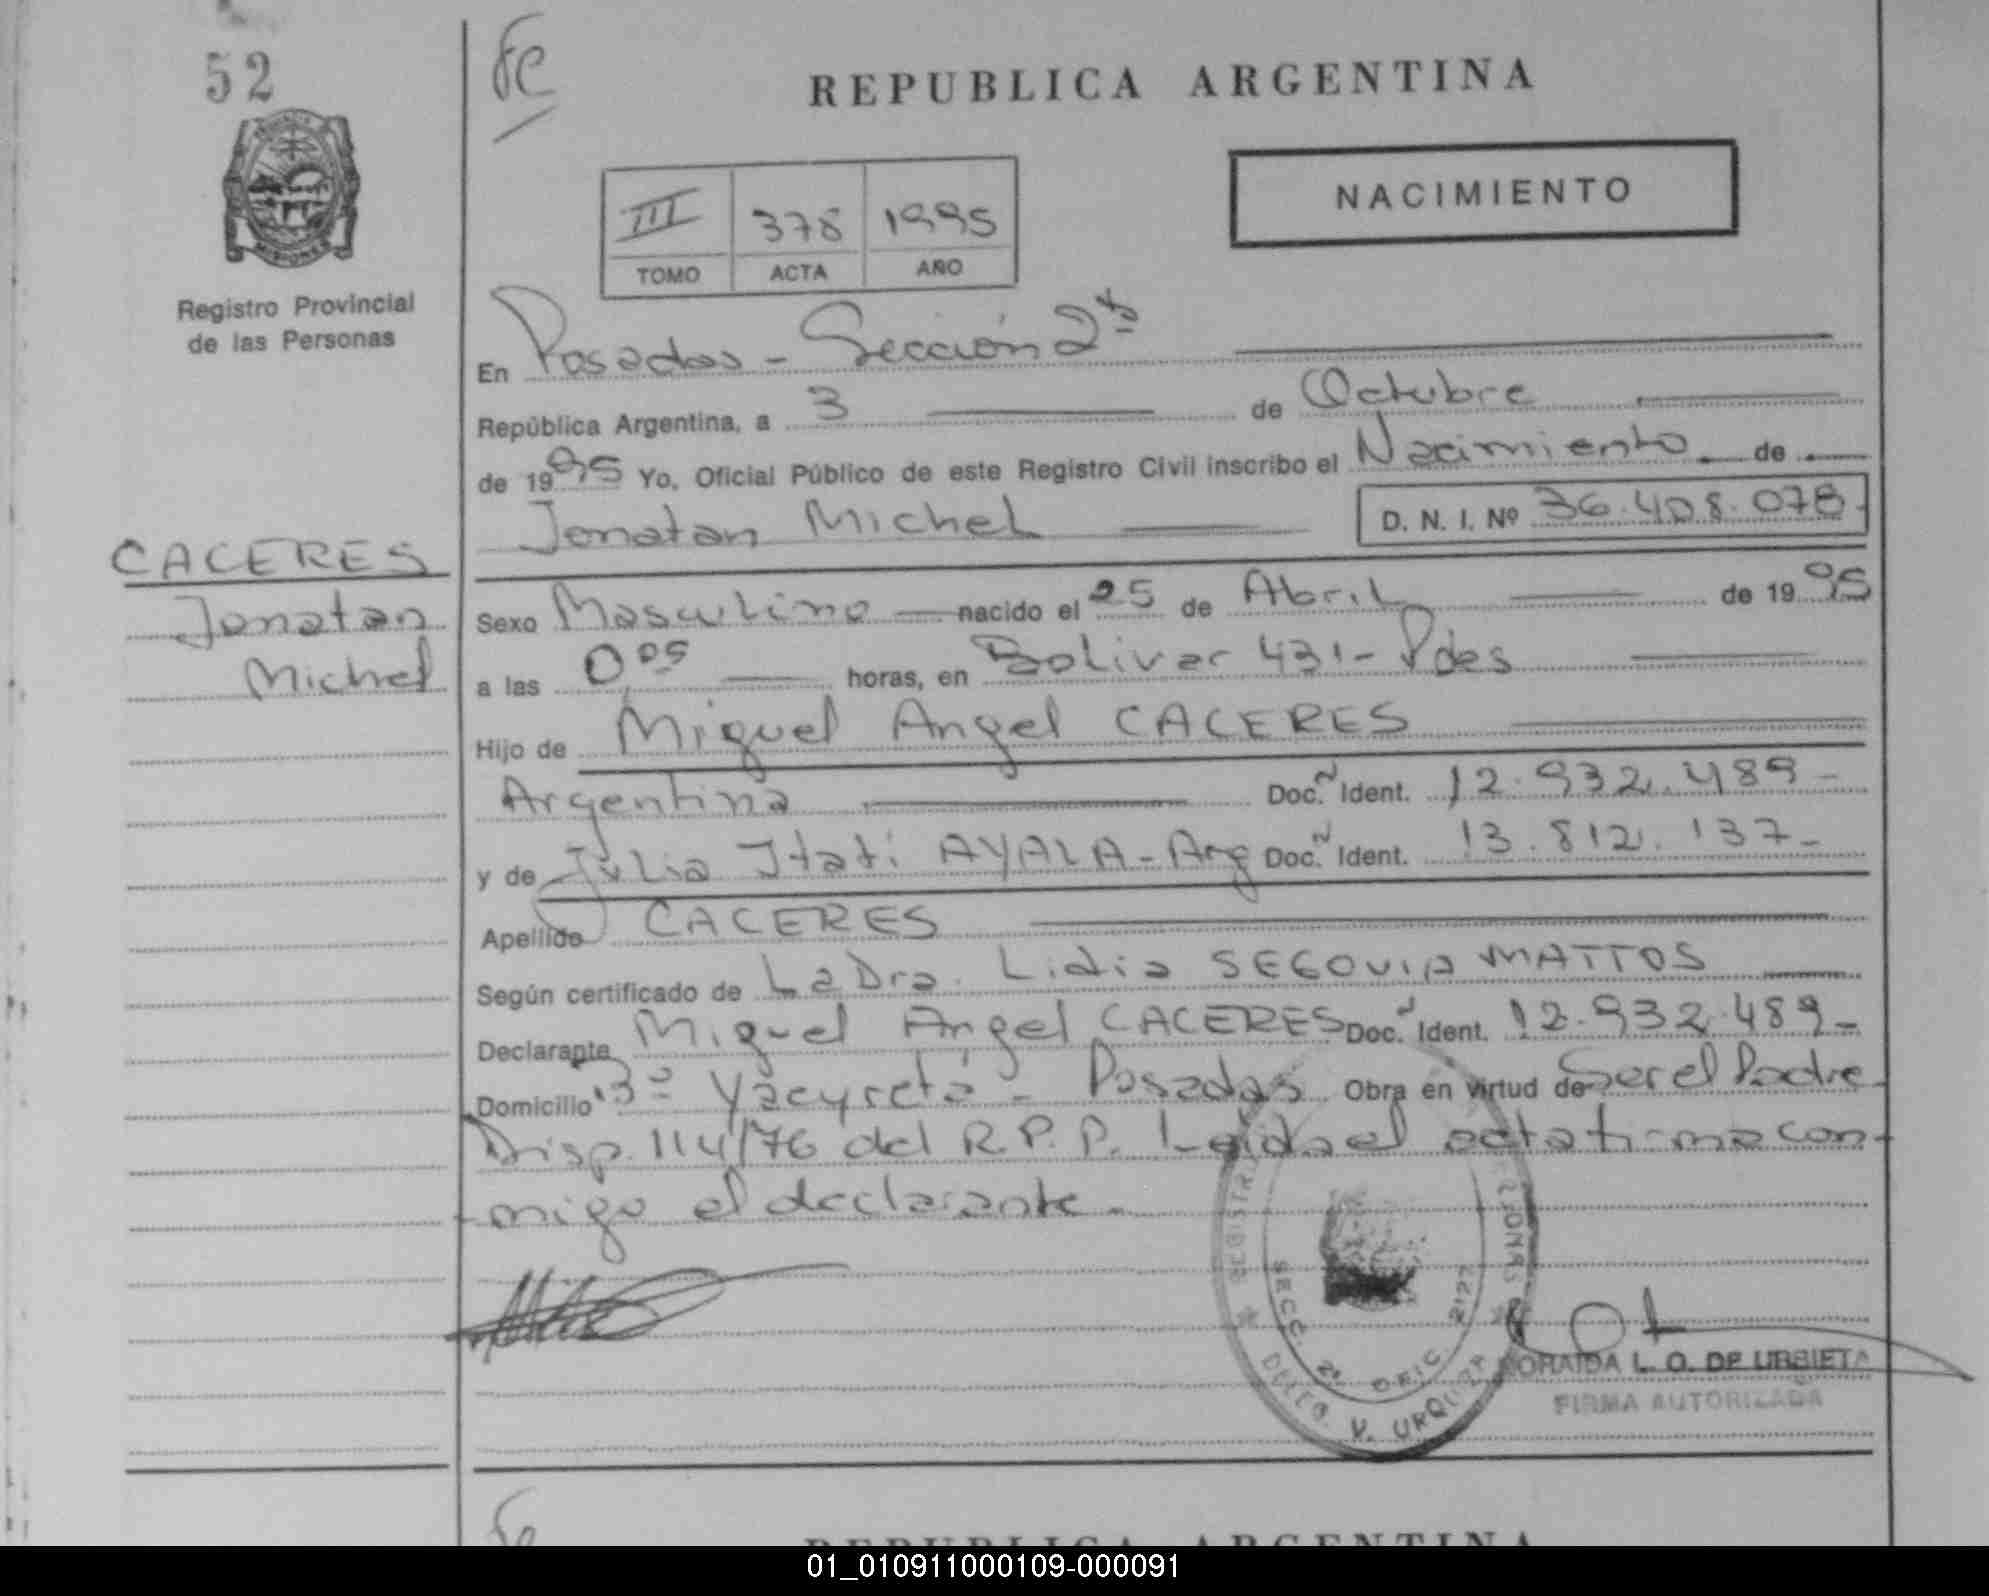 52
fe
REPUBLICA ARGENTINA
NACIMIENTO
III 378 1995
TOMO ACTA AÑO
Registro Provincial
de las Personas
En Posadas - Sección 2ª
República Argentina, a 3 de Octubre
de 1995 Yo, Oficial Público de este Registro Civil inscribo el Nacimiento de
Jonatan Michel D. N. I. Nº 36.408.078
CACERES
Jonatan
Michel
Sexo Masculino nacido el 25 de Abril de 1995
a las 0,05 horas, en Bolivar 431 - Pdes
Hijo de Miguel Angel CACERES
Argentina Doc. Ident. 12.932.489-
y de Julia Itati AYALA - Arg Doc. Ident. 13.812.137-
Apellido CACERES
Según certificado de La Dra. Lidia SEGOVIA MATTOS
Declarante Miguel Angel CACERES Doc. Ident. 12.932.489-
Domicilio Bº Yacyretá - Posadas Obra en virtud de Ser el Padre
Disp. 114/76 del R.P.P. Leida el acta firma con-
migo el declarante.
REGISTR PERSONAS
SECC. 2ª OFIC. 2177
DELEG. V. URQUIZA
NORAIDA L. O. DE URBIETA
FIRMA AUTORIZADA
REPUBLICA ARGENTINA
01_010911000109-000091